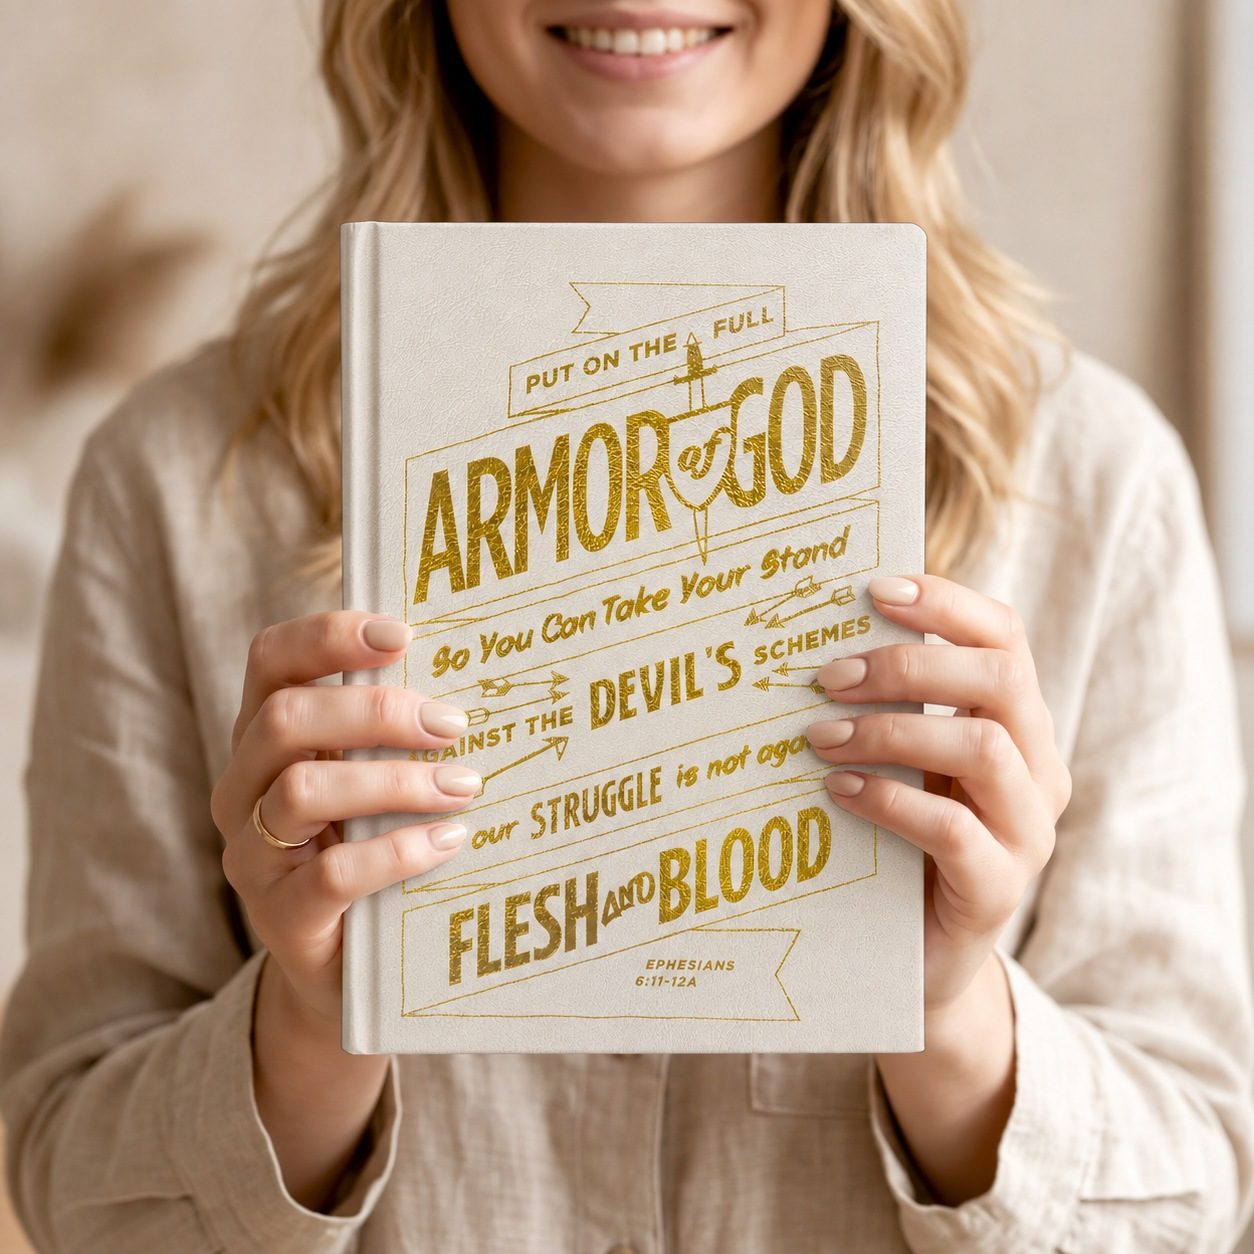 PUT ON THE FULL
ARMOR of GOD
So You Can Take Your Stand
AGAINST THE DEVIL'S SCHEMES
our STRUGGLE is not
FLESH AND BLOOD
EPHESIANS
6:11-12A